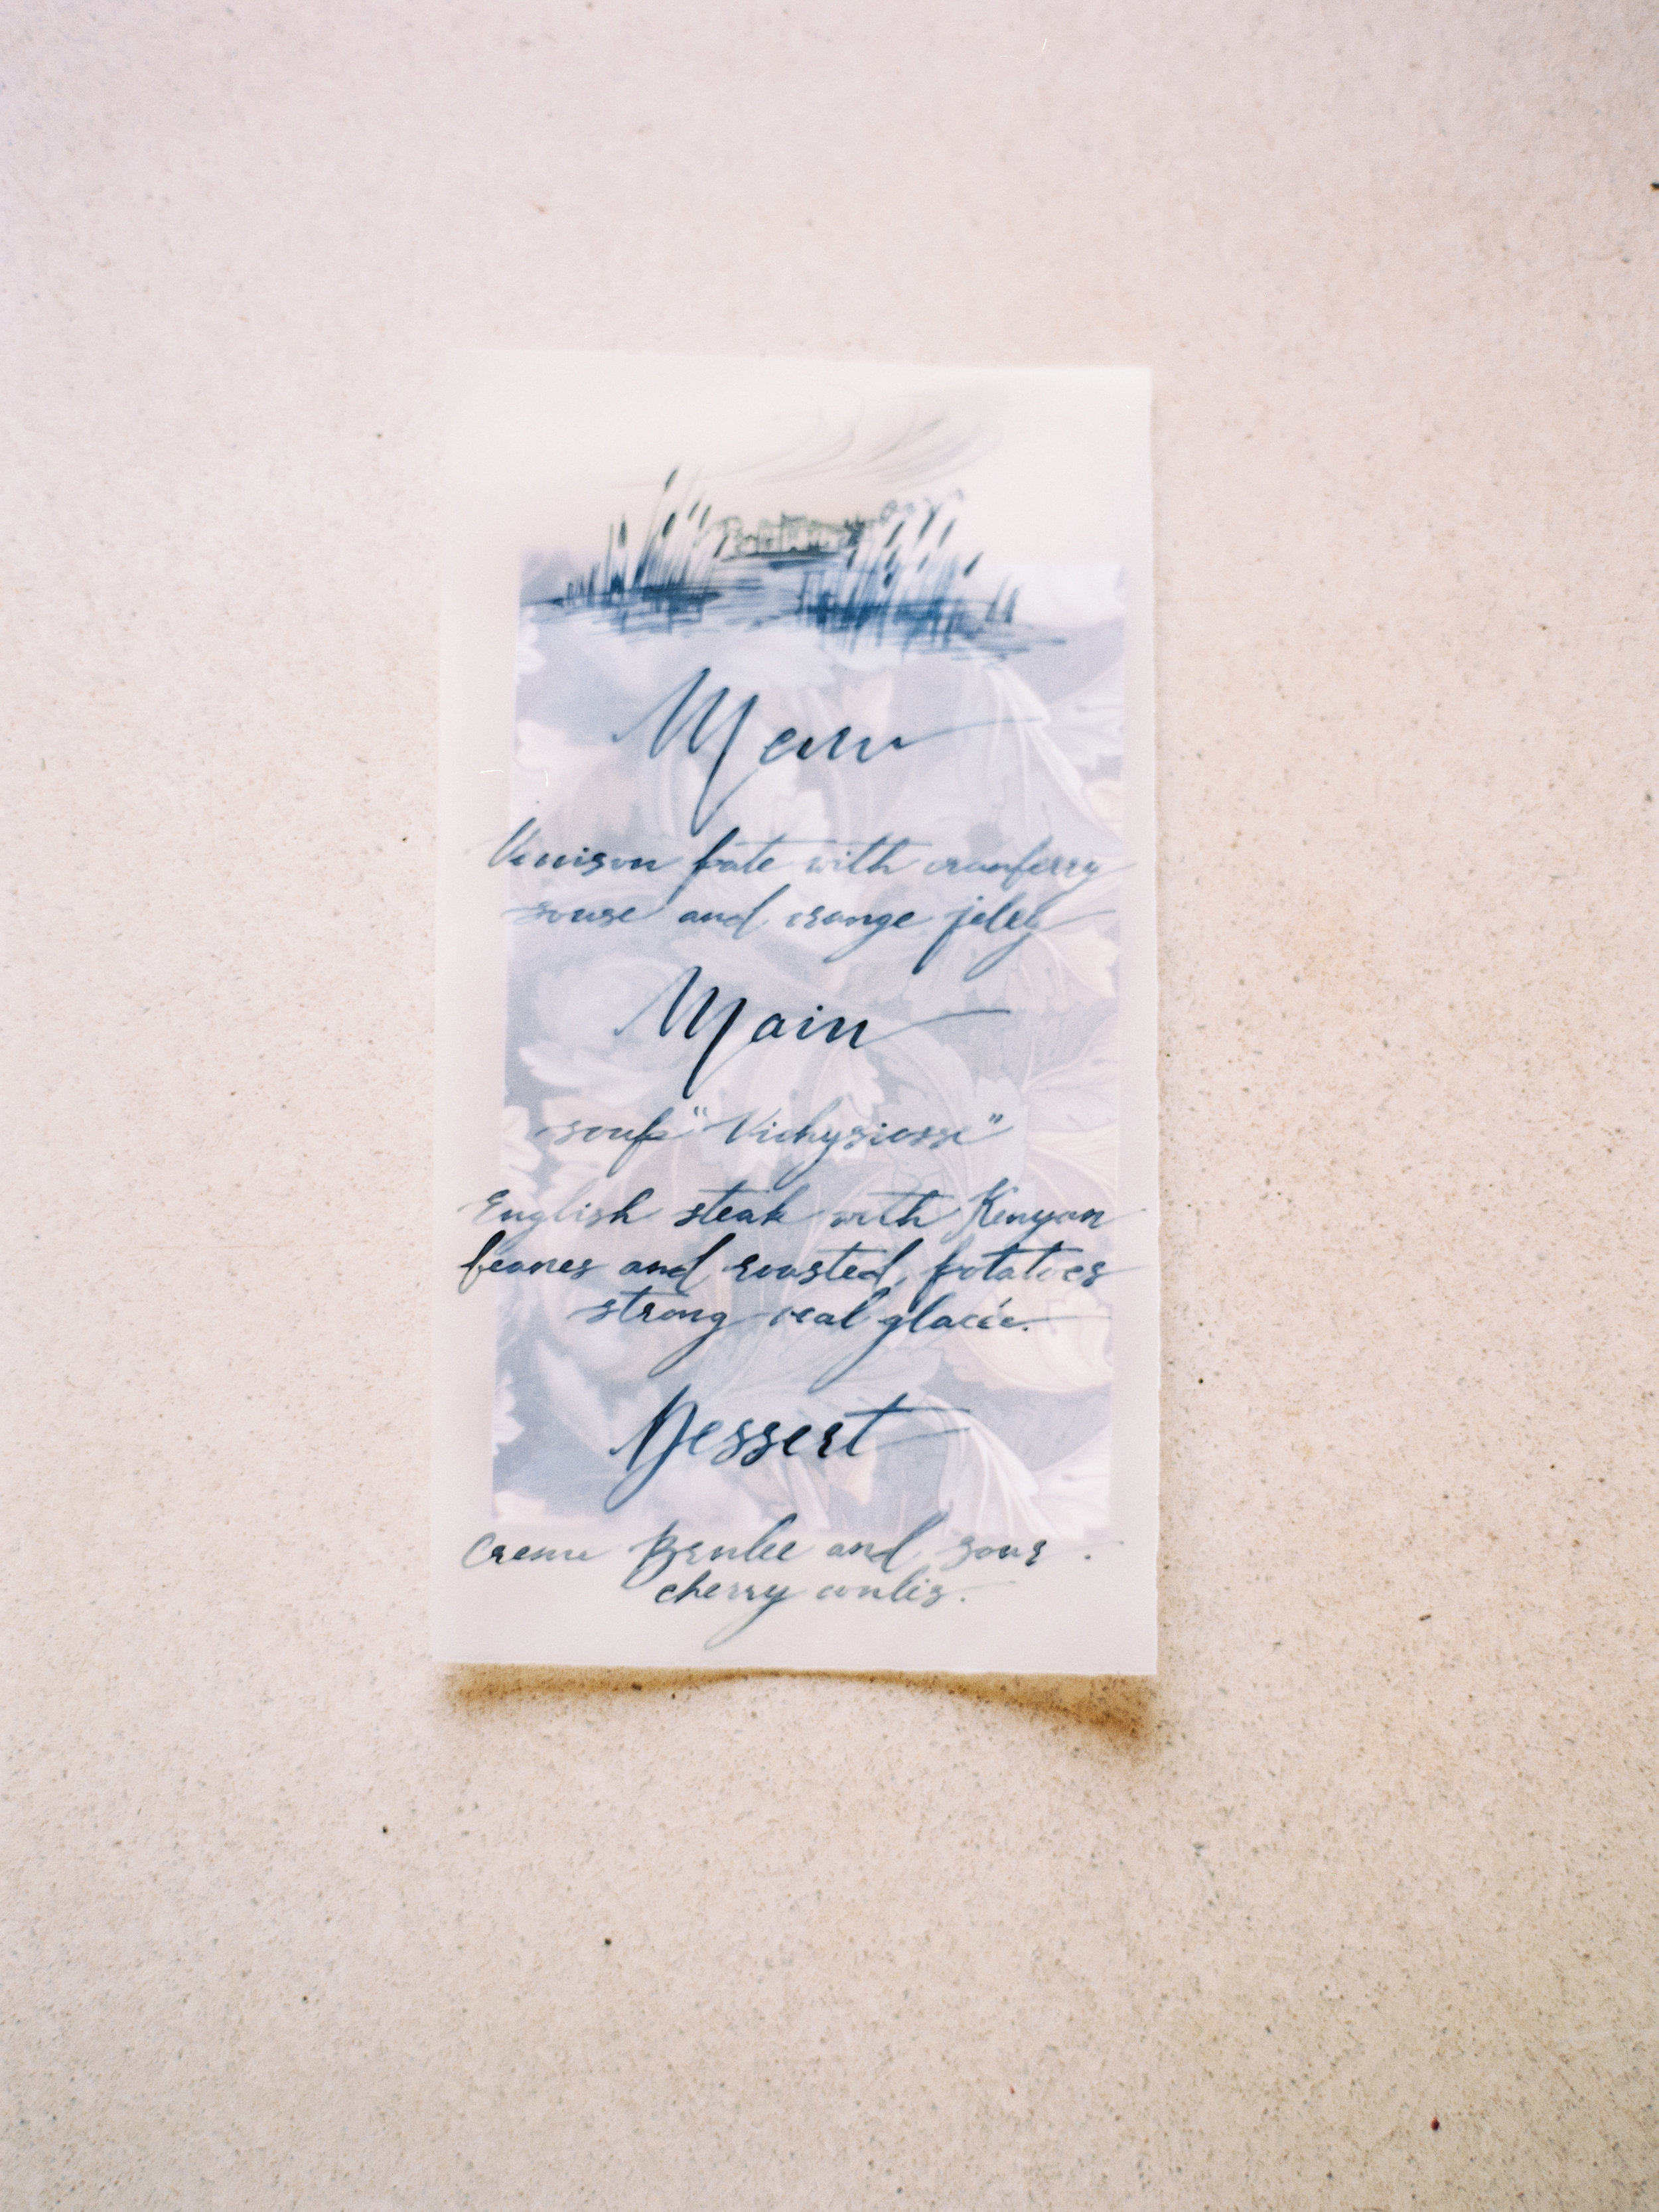 Menu
Venison pate with cranberry
souse and orange jelly
Main
soup "Vichysiosse"
English steak with Kenyan
beanes and roasted potatoes
strong veal glacée.
Dessert
Creme Brulee and sour
cherry coulis.